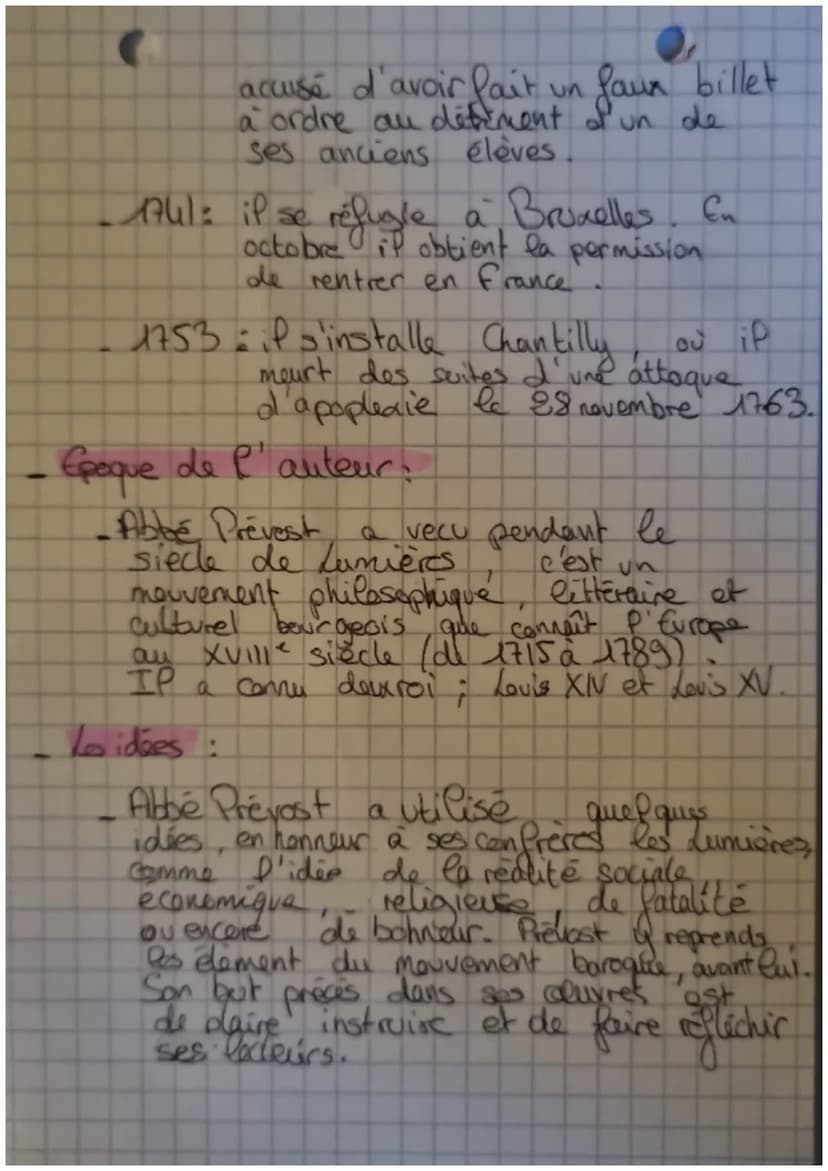 accusé d'avoir fait un faux billet
à ordre au détriment d'un de
ses anciens élèves.
- 1741 : il se réfugie à Bruxelles. En
octobre il obtient la permission
de rentrer en France.
- 1753 : il s'installe Chantilly, où il
meurt des suites d'une attaque
d'apoplexie le 28 novembre 1763.
- Epoque de l'auteur :
- Abbé Prévost a vecu pendant le
siècle de Lumières, c'est un
mouvement philosophique, littéraire et
culturel bourgeois que connaît l'Europe
au XVIIIe siècle (de 1715 à 1789).
Il a connu deux roi ; Louis XIV et Louis XV.
- Les idées :
- Abbé Prévost a utilisé quelques
idées, en honneur à ses confrères les Lumières,
comme l'idée de la réalité sociale,
economique, religieuse, de fatalité
ou encore de bohneur. Prévost y reprends
les élément du mouvement baroque, avant lui.
Son but précis dans ses œuvres est
de plaire instruire et de faire réfléchir
ses lecteurs.